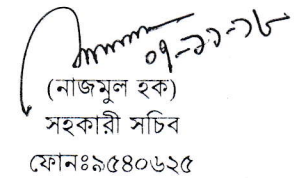 ০৭-১১-১৮
(নাজমুল হক)
সহকারী সচিব
ফোনঃ৯৫৪০৬২৫